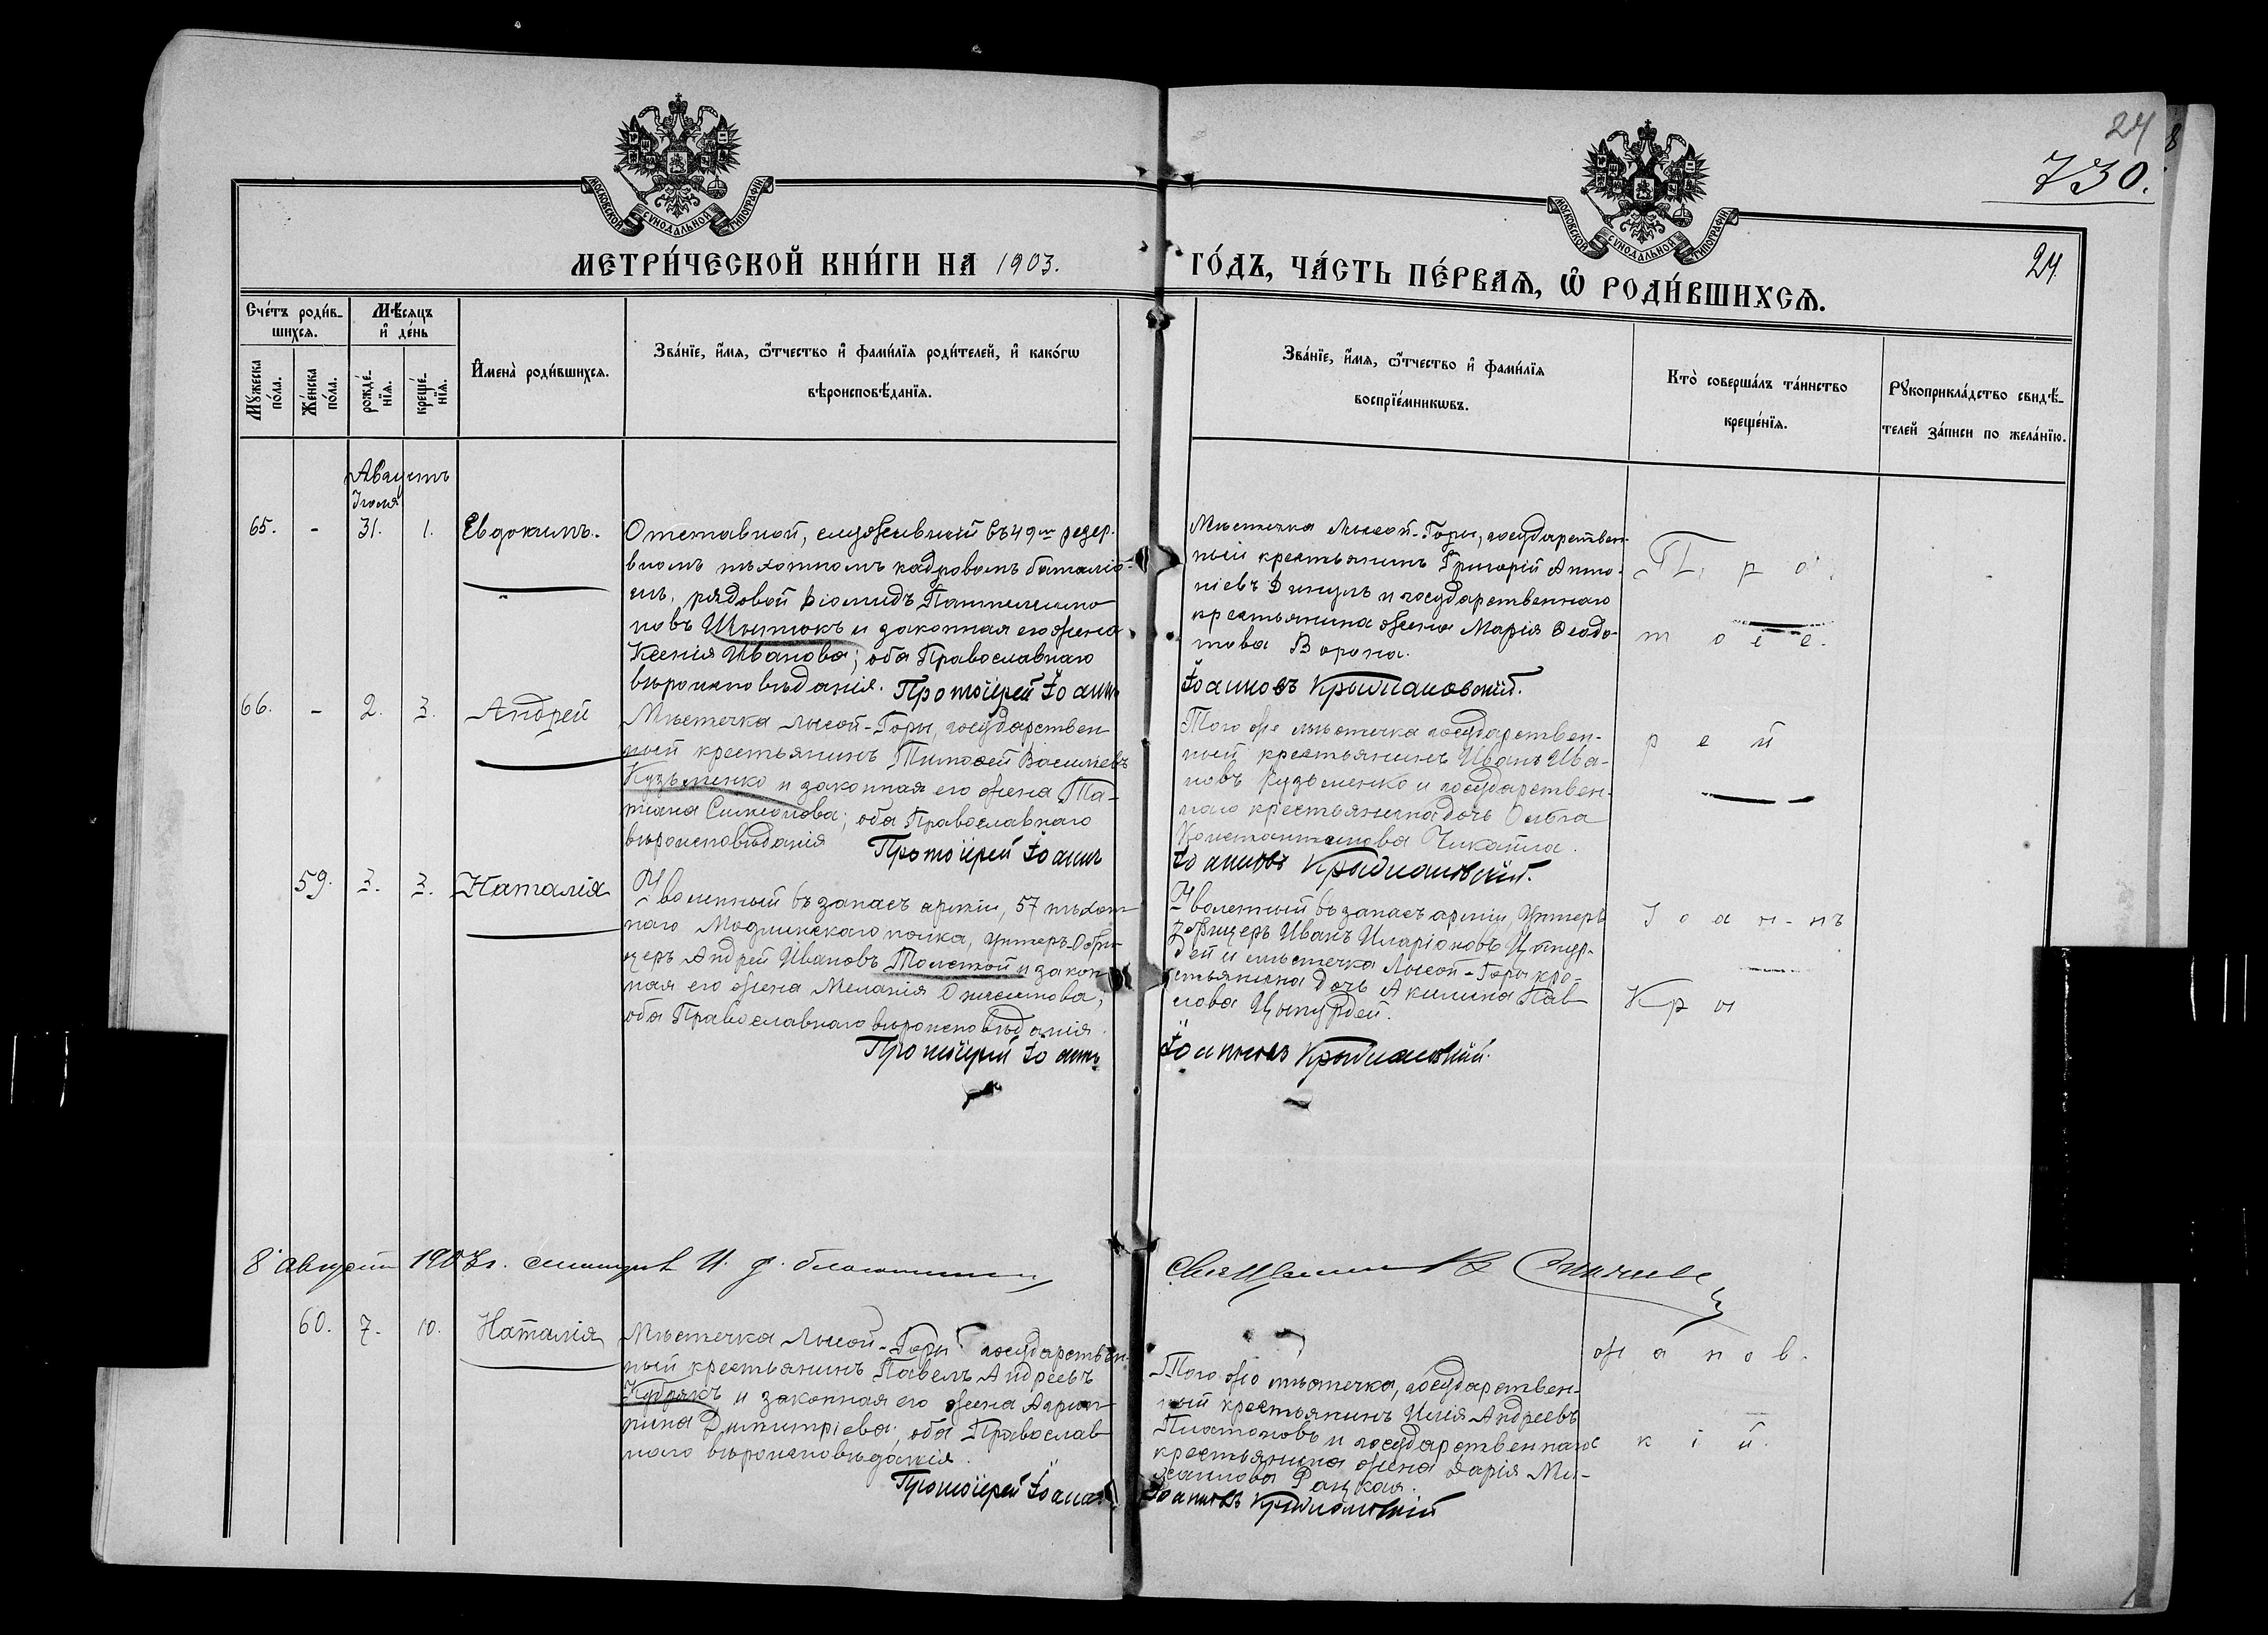 24
8
730.
МОСКОВСКОЙ СѴНОДАЛЬНОЙ ТИПОГРАФІИ
МОСКОВСКОЙ СѴНОДАЛЬНОЙ ТИПОГРАФІИ
МЕТРИ́ЧЕСКОЙ КНИ́ГИ НА 1903.
ГО́ДЪ, ЧА́СТЬ ПЕ́РВАѦ, Ѡ҆ РОДИ́ВШИХСѦ.
24.
Сче́тъ роди́в-
шихсѧ.
Мѣ́сяцъ
и҆ де́нь
Мꙋ́жеска
по́ла.
Же́нска
по́ла.
рожде́-
нїѧ.
креще́-
нїѧ.
И҆мена̀ роди́вшихсѧ.
Зва́нїе, и҆́мѧ, ѻ҆́тчество и҆ фами́лїѧ роди́телей, и҆ како́гѡ
вѣроисповѣ́данїѧ.
Зва́нїе, и҆́мѧ, ѻ҆́тчество и҆ фами́лїѧ
воспрїе́мникѡвъ.
Кто̀ соверша́лъ та́инство
креще́нїѧ.
Рꙋкоприкла́дство свидѣ́-
телей за́писи по жела́нїю.
Августъ
Іюля
65. - 31. 1. Евдокимъ.
Отставной, служившій въ 49мъ резер-
вномъ пѣхотномъ кадровомъ баталіо-
нѣ, рядовой Діомидъ Пантелеимо-
новъ и законная его жена
Ксенія Иванова; оба Православнаго
вѣроисповѣданія. Протоіерей Іоаннъ
Мѣстечка Лысой-Горы, государствен-
ный крестьянинъ Григорій Анто-
ніевъ и государственнаго
крестьянина жена Марія Ѳеодо-
това Ворона.
Іоанновъ Крыжановскій.
П р о
т о і е
66. - 2. 3. Андрей
Мѣстечка Лысой-Горы, государствен
ный крестьянинъ Тимоѳей Васильевъ
Кузьменко и законная его жена Та-
тіана Симеонова; оба Православнаго
вѣроисповѣданія Протоіерей Іоаннъ
Того же мѣстечка государствен-
ный крестьянинъ Иванъ Ива-
новъ Кузьменко и государствен-
наго крестьянина дочь Ольга
Константинова
Іоанновъ Крыжановскій.
р е й
59. 3. 3. Наталія
Уволенный въ запасъ арміи, 57 пѣхот
наго Модлинскаго полка, унтеръ-офи-
церъ Андрей Ивановъ Толстой и закон
ная его жена Меланія Онисимова;
оба Православнаго вѣроисповѣданія.
Протоіерей Іоаннъ
Уволенный въ запасъ арміи, унтеръ
офицеръ Иванъ Иларіоновъ Цыпур-
дей и мѣстечка Лысой-Горы кре-
стьянина дочь Акилина Пав
лова Цыпурдей.
Іоанновъ Крыжановскій.
І о а н - нъ
К р ы
8 Августа 1903 г. И. д.
60. 7. 10. Наталія
Мѣстечка Лысой-Горы государствен-
ный крестьянинъ Павелъ Андреевъ
Кобрякъ и законная его жена Агрип
пина Димитріева; оба Православ
наго вѣроисповѣданія.
Протоіерей Іоаннъ
Того же мѣстечка, государствен-
ный крестьянинъ Илія Андреевъ
Платоновъ и государственнаго
крестьянина жена Дарія Ми-
хаилова Рацкая.
Іоанновъ Крыжановскій
ж а н о в
с к і й.